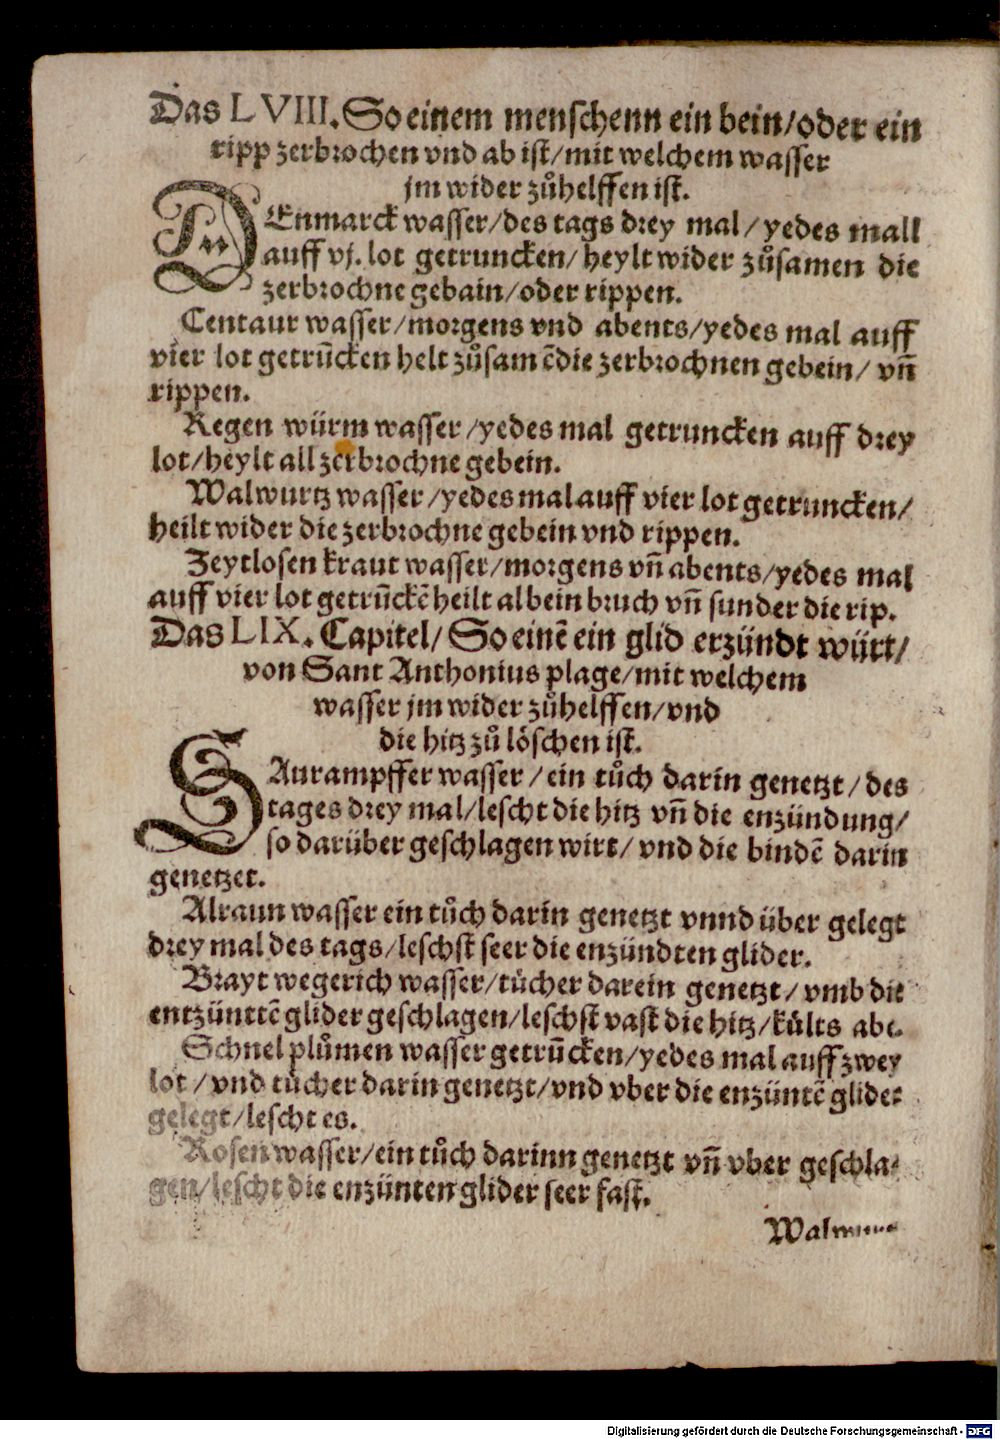 Das LVIII. So einem menschenn ein bein/oder ein
ripp zerbrochen vnd ab ist/mit welchem wasser
jm wider zůhelffen ist.
DEnmarck wasser/des tags drey mal/yedes mall
auff vj. lot getruncken/heylt wider zůsamen die
zerbrochne gebain/oder rippen.
Centaur wasser/morgens vnd abents/yedes mal auff
vier lot getrũcken helt zůsam ẽdie zerbrochnen gebein/ vñ
rippen.
Regen würm wasser/yedes mal getruncken auff drey
lot/heylt all zerbrochne gebein.
Walwurtz wasser/yedes mal auff vier lot getruncken/
heilt wider die zerbrochne gebein vnd rippen.
Zeytlosen kraut wasser/morgens vñ abents/yedes mal
auff vier lot getrũckẽ heilt al bein bruch vñ sunder die rip.
Das LIX. Capitel/ So einẽ ein glid erzündt würt/
von Sant Anthonius plage/mit welchem
wasser jm wider zůhelffen/vnd
die hitz zů löschen ist.
SAurampffer wasser/ein tůch darin genetzt/des
tages drey mal/lescht die hitz vñ die enzündung/
so darüber geschlagen wirt/ vnd die bindẽ darin
genetzet.
Alraun wasser ein tůch darin genetzt vnnd über gelegt
drey mal des tags/leschst seer die enzündten glider.
Brayt wegerich wasser/tücher darein genetzt/vmb die
entzünttẽ glider geschlagen/leschst vast die hitz/külts abe.
Schnel plůmen wasser getrũcken/yedes mal auff zwey
lot/vnd tücher darin genetzt/vnd vber die enzüntẽ glider
gelegt/lescht es.
Rosen wasser/ein tůch darinn genetzt vñ vber geschla⸗
gen/lescht die enzünten glider seer fast.
Digitalisierung gefördert durch die Deutsche Forschungsgemeinschaft - DFG